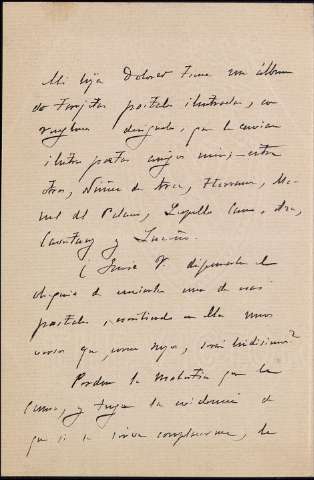 Mi hija Dolores tiene un álbum
de tarjetas postales ilustradas, con
renglones desiguales, que le envían
ilustres poetas amigos míos, entre
otros, Núñez de Arce, Ferrari, Ma-
nuel del Palacio, Leopoldo Cano,
Cavestany y
¿Quiere V. dispensarle el
obsequio de enviarle una de esas
postales, escribiendo en ella unos
versos que, como suyos, serán lindísimos?
Perdone la molestia que le
causo, y tenga la evidencia de
que si se sirve complacerme, le